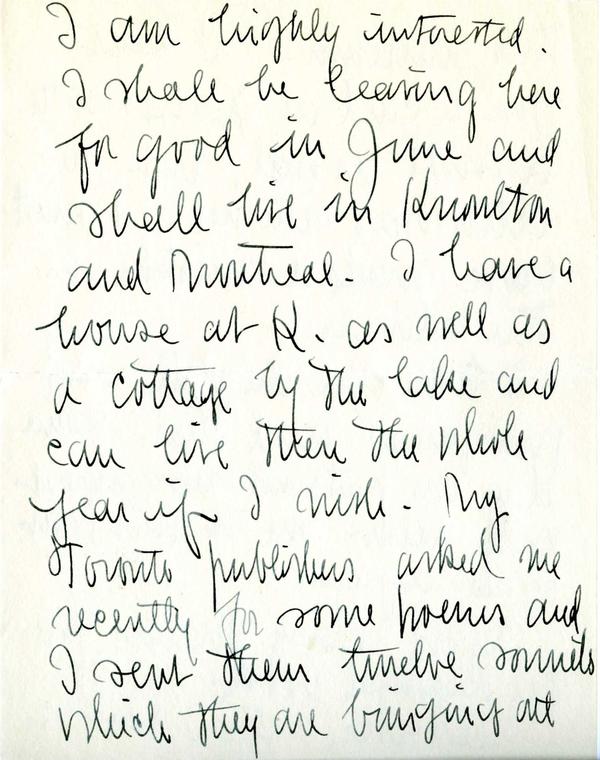 I am highly interested.
I shall be leaving here
for good in June and
shall live in Knowlton
and Montreal. I have a
house at K. as well as
a cottage by the lake and
can live there the whole
year if I wish. My
Toronto publishers asked me
recently for some poems and
I sent them twelve sonnets
which they are bringing out